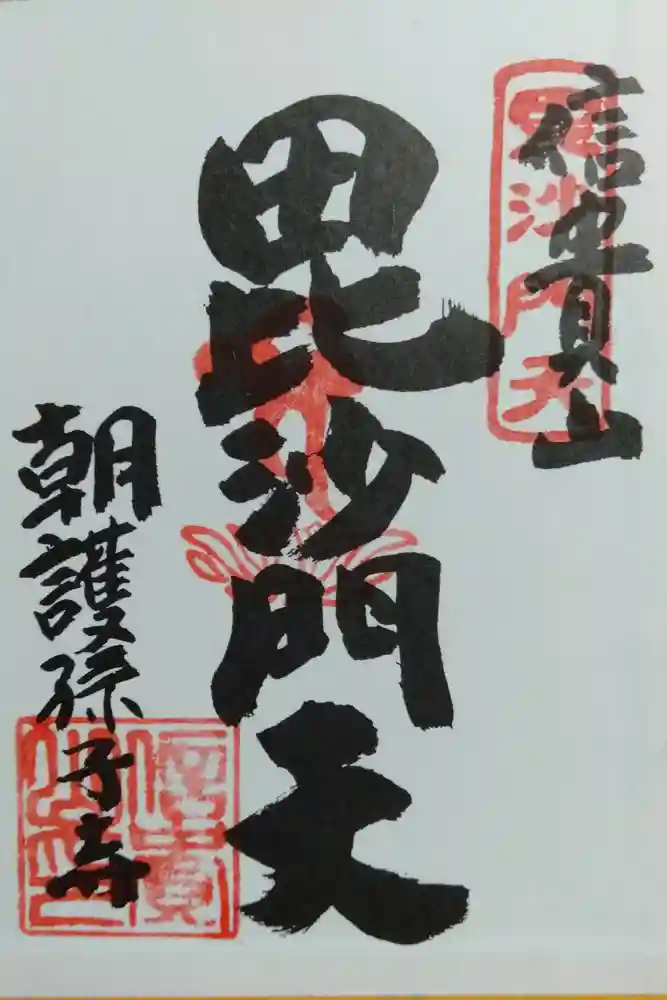 信貴山
毘沙門天
毘沙門天
朝護孫子寺
信貴山